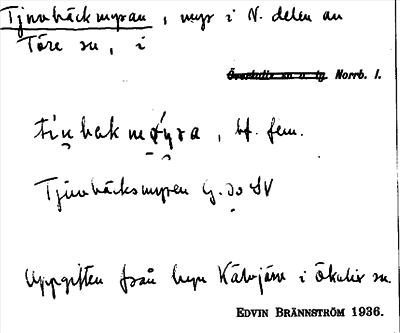 Tjuvbäckmyran, myr i N. delen av
Töre sn, i
Överkalix sn o. tg Norrb. l.
bf. fem.
Tjuvbäcksmyren G.
Uppgiften från byn Kälvjärv i Ö kalix sn.
EDVIN BRÄNNSTRÖM 1936.